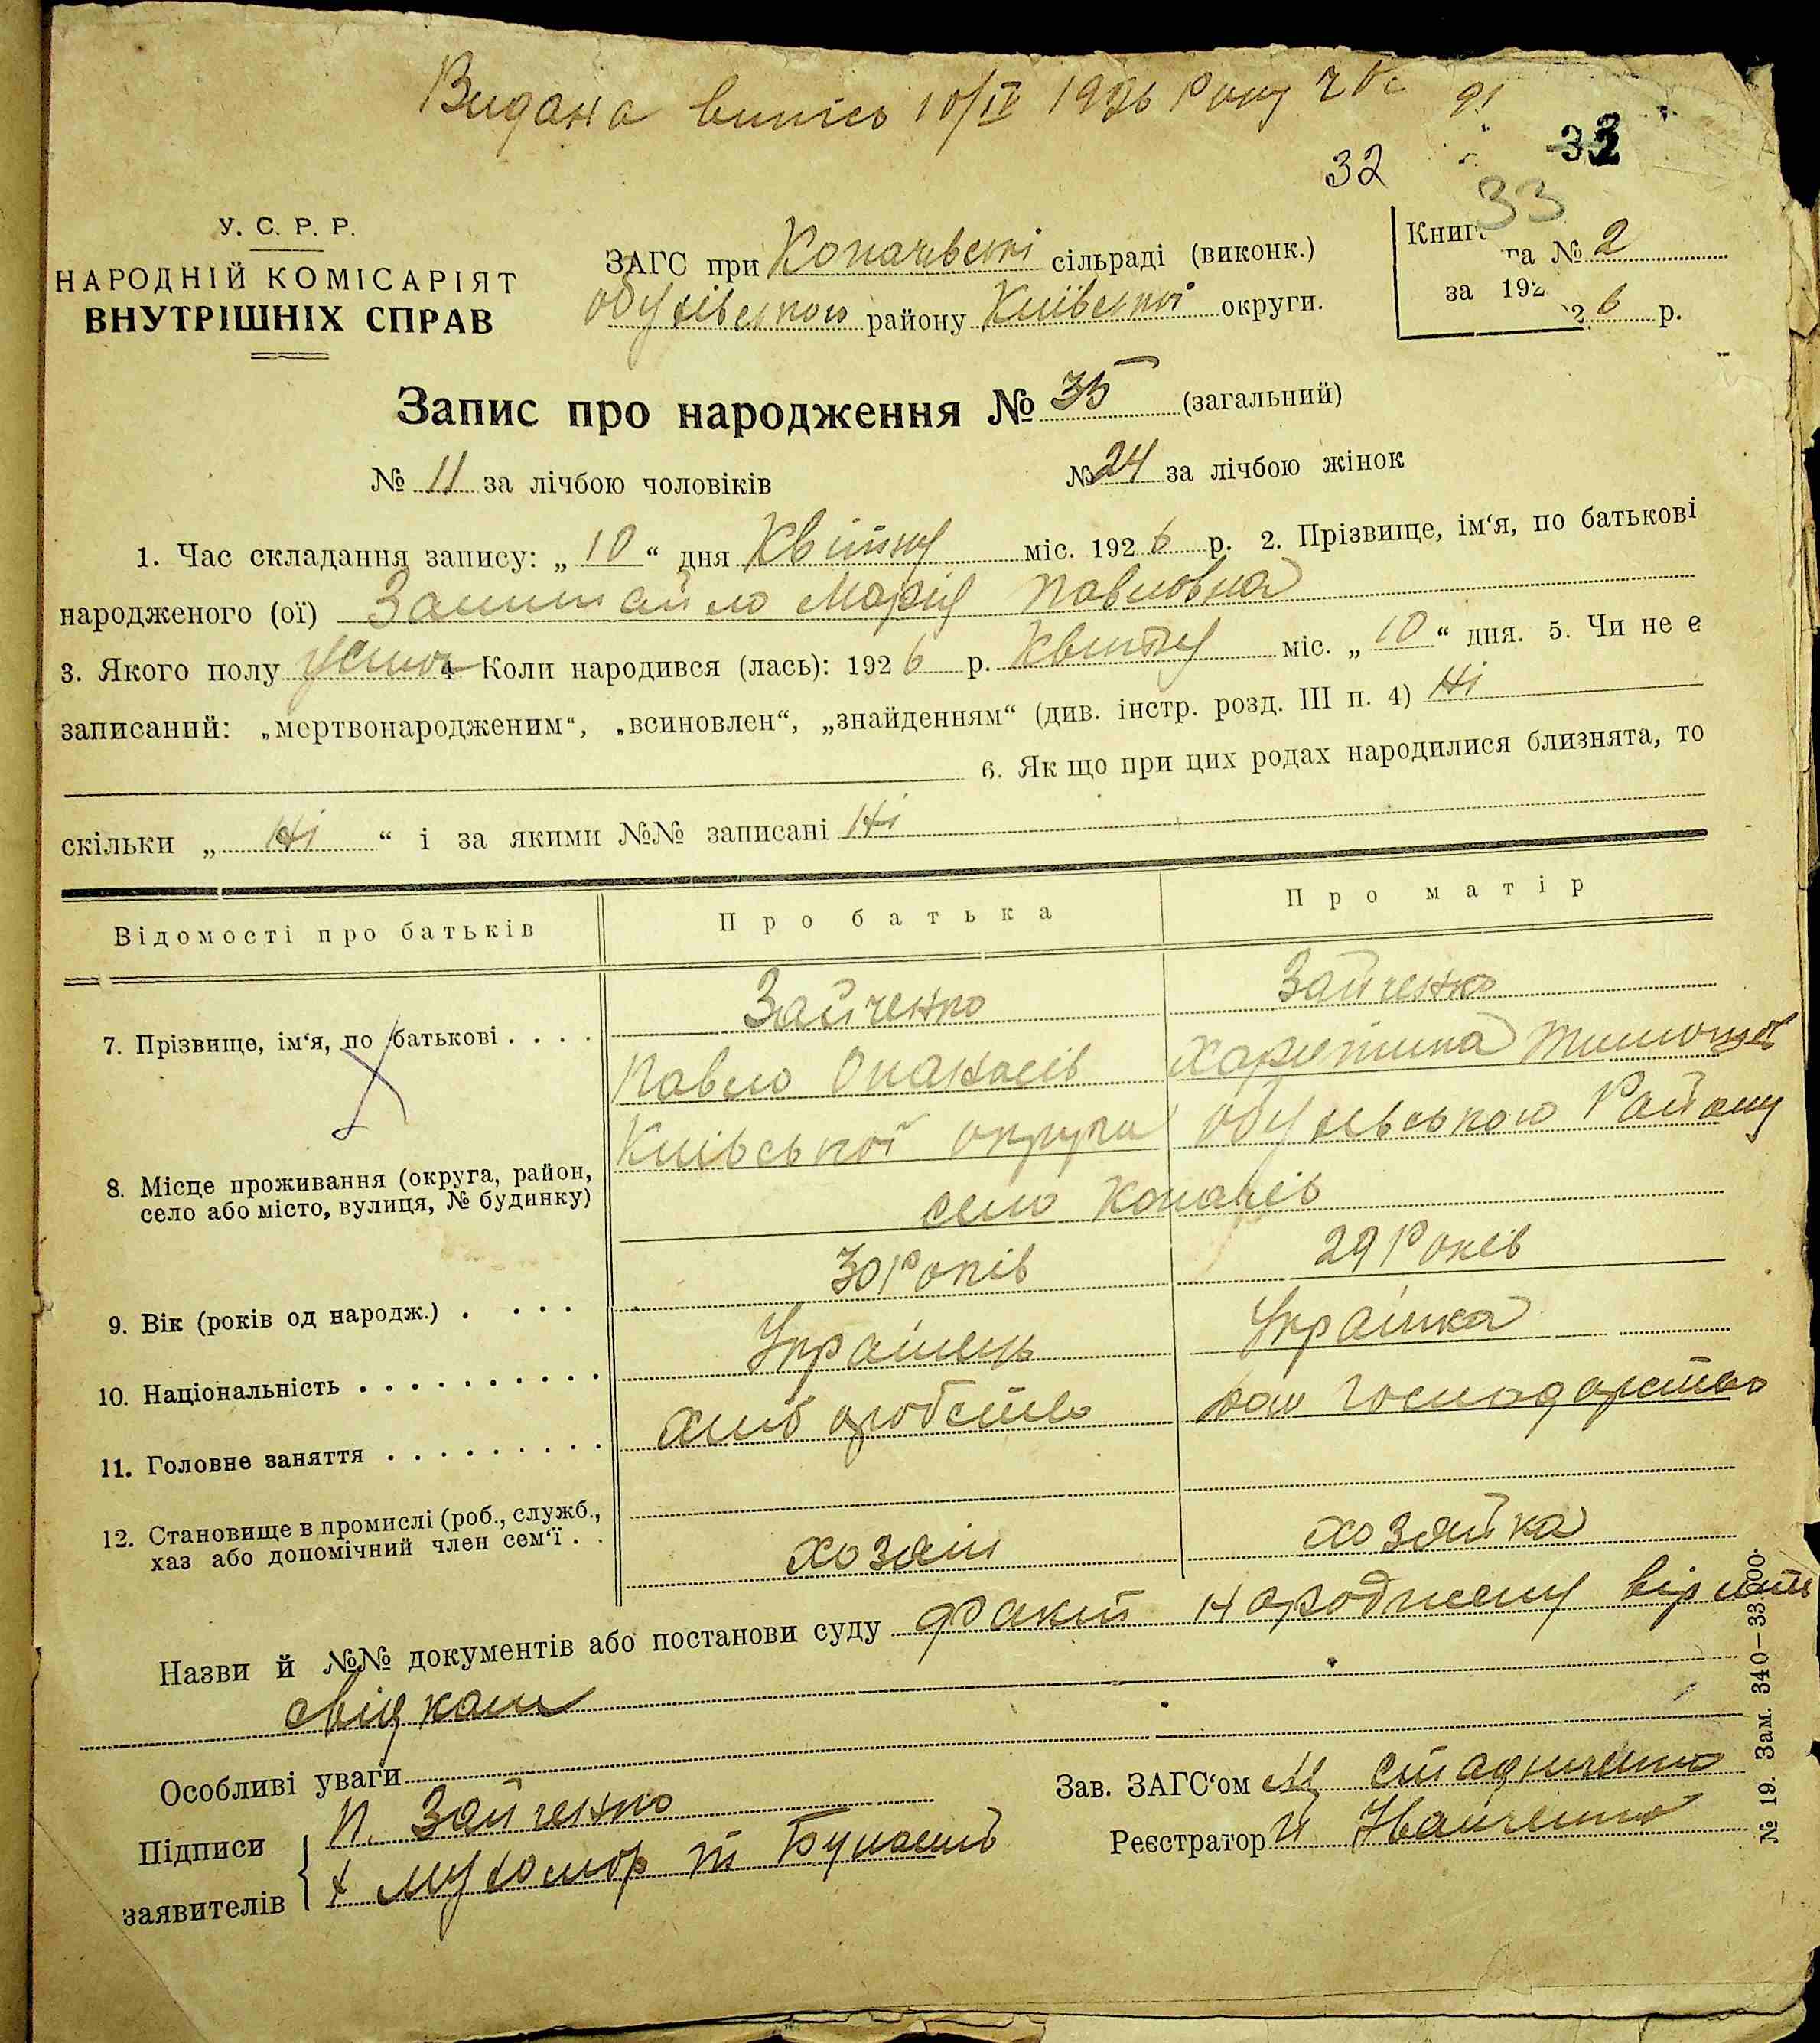 Видана випись 10/IV 1926 Року
32
33
32
У. С. Р. Р.
НАРОДНІЙ КОМІСАРІЯТ
ВНУТРІШНІХ СПРАВ
ЗАГС при Копачівські сільраді (виконк.)
Обухівського району Київської округи.
Книга № 2
за 1926 р.
Запис про народження № 35 (загальний)
№ 11 за лічбою чоловіків № 24 за лічбою жінок
1. Час складання запису: „ 10 “ дня Квітня міс. 1926 р. 2. Прізвище, ім‘я, по батькові
народженого (ої) Марія Павловна
3. Якого полу 4 Коли народився (лась): 1926 р. Квітня міс. „ 10 “ дня. 5. Чи не є
записаний: „мертвонародженим“, „всиновлен“, „знайденням“ (див. інстр. розд. III п. 4) Ні
6. Як що при цих родах народилися близнята, то
скільки „ Ні “ і за якими №№ записані Ні
Відомості про батьків Про батька Про матір
7. Прізвище, ім‘я, по батькові . . . . Зайченко Зайченко
Павло Опанасів Харитина
Київської округи Обухівського Району
8. Місце проживання (округа, район,
село або місто, вулиця, № будинку)
село Копачів
9. Вік (років од народж.) . . . . 30 Років 29 Років
10. Національність . . . . . . . . . . Українець Українка
11. Головне заняття . . . . . . . . . хліборобство дом господарство
12. Становище в промислі (роб., служб.,
хаз або допомічний член сем‘ї . . хозяїн хозяйка
Назви й №№ документів або постанови суду Факт народженя
свідками
Особливі уваги
Зав. ЗАГС‘ом Стадниченко
Підписи
заявителів
П. Зайченко
Реєстратор
№ 19. Зам. 340—33.000.